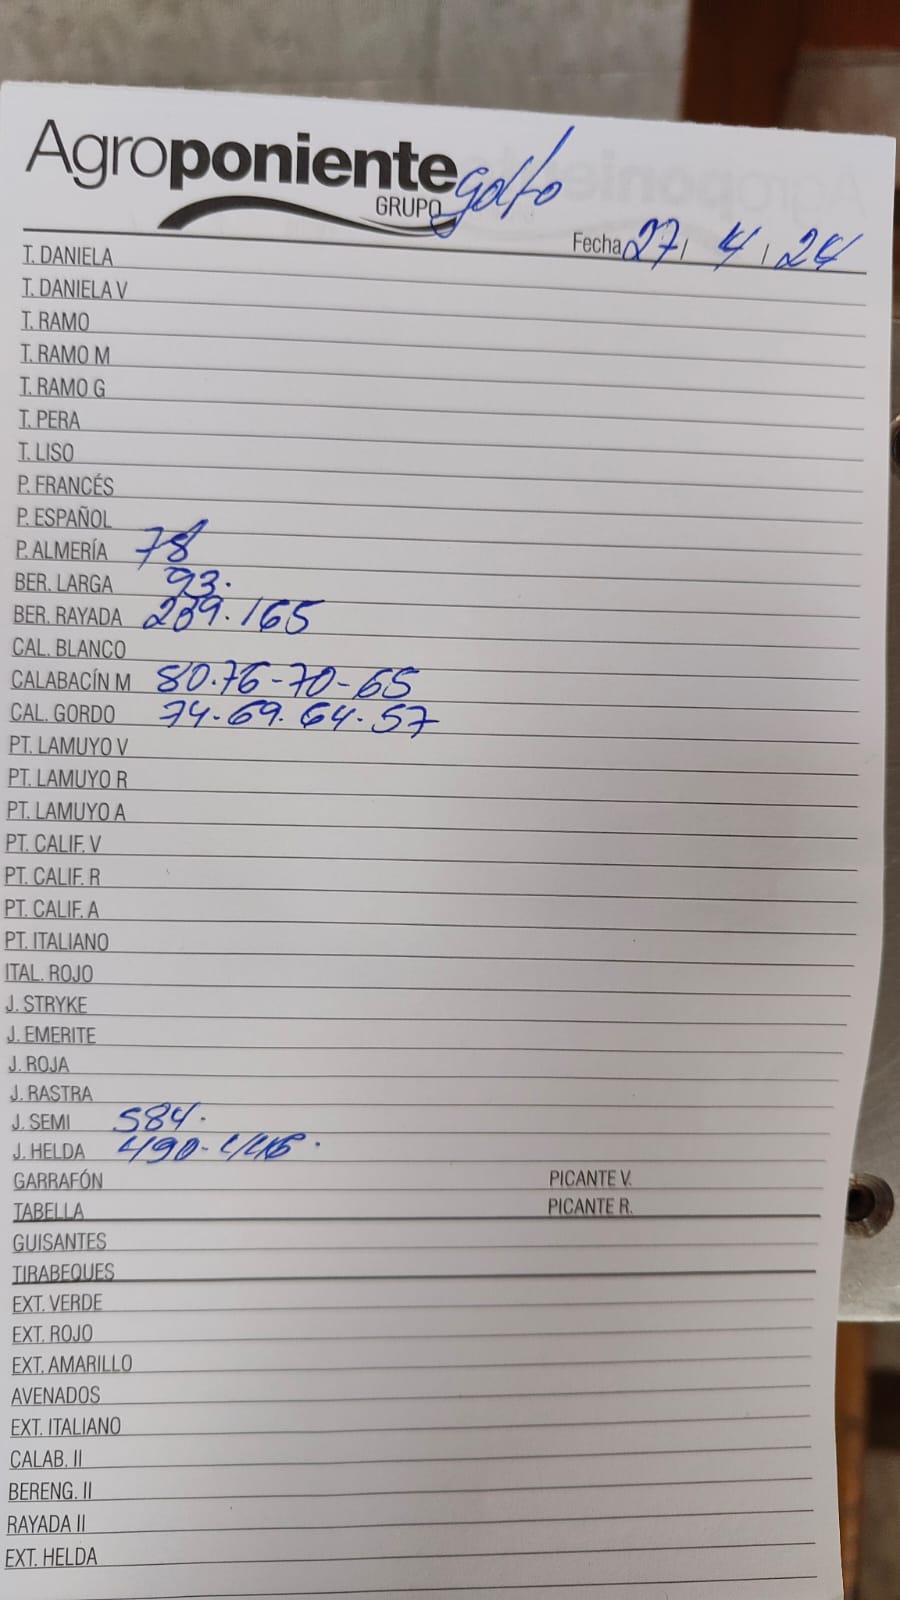 Agroponiente golfo
GRUPO
Fecha 27 / 4 / 24
T. DANIELA
T. DANIELA V
T. RAMO
T. RAMO M
T. RAMO G
T. PERA
T. LISO
P. FRANCÉS
P. ESPAÑOL
P. ALMERÍA 78
BER. LARGA 93.
BER. RAYADA 209.165
CAL. BLANCO
CALABACÍN M 80.76-70-65
CAL. GORDO 74.69.64.57
PT. LAMUYO V
PT. LAMUYO R
PT. LAMUYO A
PT. CALIF. V
PT. CALIF. R
PT. CALIF. A
PT. ITALIANO
ITAL. ROJO
J. STRYKE
J. EMERITE
J. ROJA
J. RASTRA
J. SEMI 584.
J. HELDA 490-446.
GARRAFÓN PICANTE V.
TABELLA PICANTE R.
GUISANTES
TIRABEQUES
EXT. VERDE
EXT. ROJO
EXT. AMARILLO
AVENADOS
EXT. ITALIANO
CALAB. II
BERENG. II
RAYADA II
EXT. HELDA